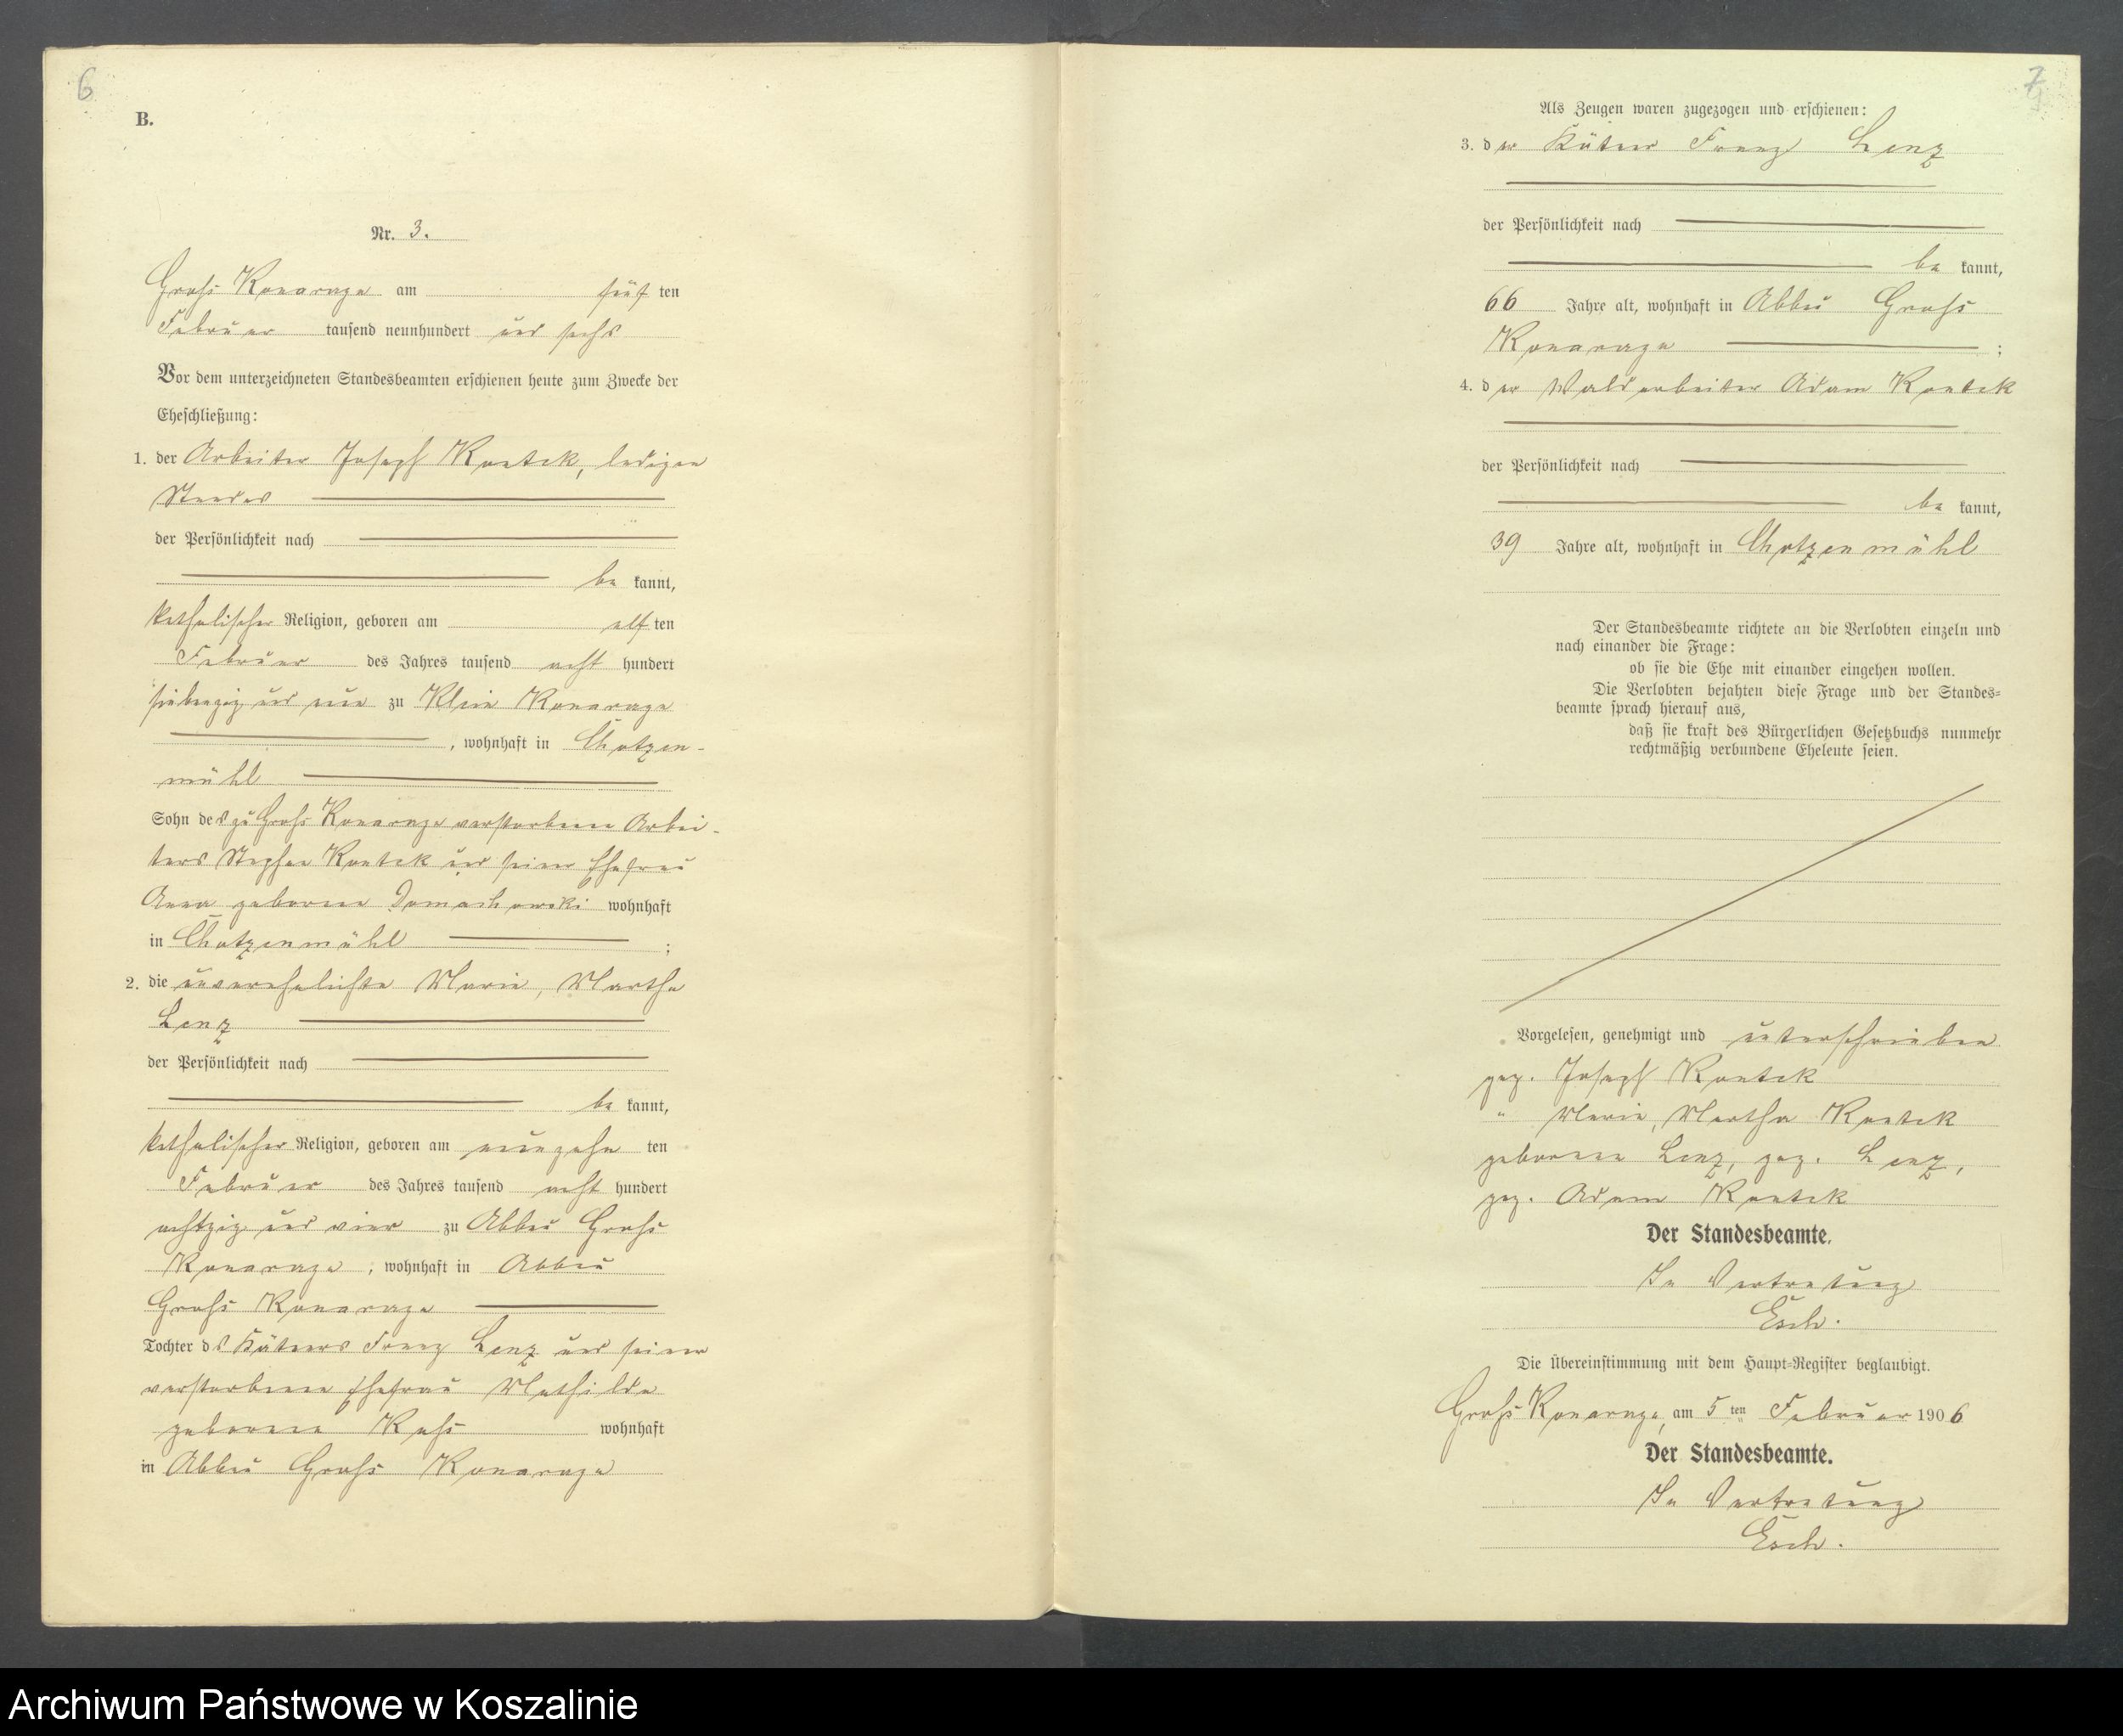 6
B.
Nr. 3.
Groß Konarzyn am fünf ten
Februar tausend neunhundert und sechs
Vor dem unterzeichneten Standesbeamten erschienen heute zum Zwecke der
Eheschließung:
1. der Arbeiter Joseph Kontek, ledigen
Standes
der Persönlichkeit nach
be kannt,
katholischer Religion, geboren am elf ten
Februar des Jahres tausend acht hundert
siebenzig und neun zu Klein Konarzyn
, wohnhaft in Chotzen-
mühl
Sohn des zu Groß Konarzyn verstorbenen Arbei-
ters Stephan Kontek und seiner Ehefrau
Anna geborene Domachowski wohnhaft
in Chotzenmühl ;
2. die unverehelichte Marie, Martha
Lenz
der Persönlichkeit nach
be kannt,
katholischer Religion, geboren am neunzehn ten
Februar des Jahres tausend acht hundert
achtzig und vier zu Abbau Groß
Konarzyn , wohnhaft in Abbau
Groß Konarzyn
Tochter des Kätners Franz Lenz und seiner
verstorbenen Ehefrau Mathilde
geborene wohnhaft
in Abbau Groß Konarzyn
7
Als Zeugen waren zugezogen und erschienen:
3. der Kätner Franz Lenz
der Persönlichkeit nach
be kannt,
66 Jahre alt, wohnhaft in Abbau Groß
Konarzyn ;
4. der Waldarbeiter Adam Kontek
der Persönlichkeit nach
be kannt,
39 Jahre alt, wohnhaft in Chotzenmühl
Der Standesbeamte richtete an die Verlobten einzeln und
nach einander die Frage:
ob sie die Ehe mit einander eingehen wollen.
Die Verlobten bejahten diese Frage und der Standes-
beamte sprach hierauf aus,
daß sie kraft des Bürgerlichen Gesetzbuchs nunmehr
rechtmäßig verbundene Eheleute seien.
Vorgelesen, genehmigt und unterschrieben
gez. Joseph Kontek
" Marie, Martha Kontek
geborene Lenz, gez. Lenz,
gez. Adam Kontek
Der Standesbeamte.
In Vertretung
Esch.
Die Übereinstimmung mit dem Haupt-Register beglaubigt.
Groß Konarzyn, am 5 ten Februar 1906
Der Standesbeamte.
In Vertretung
Esch.
Archiwum Państwowe w Koszalinie